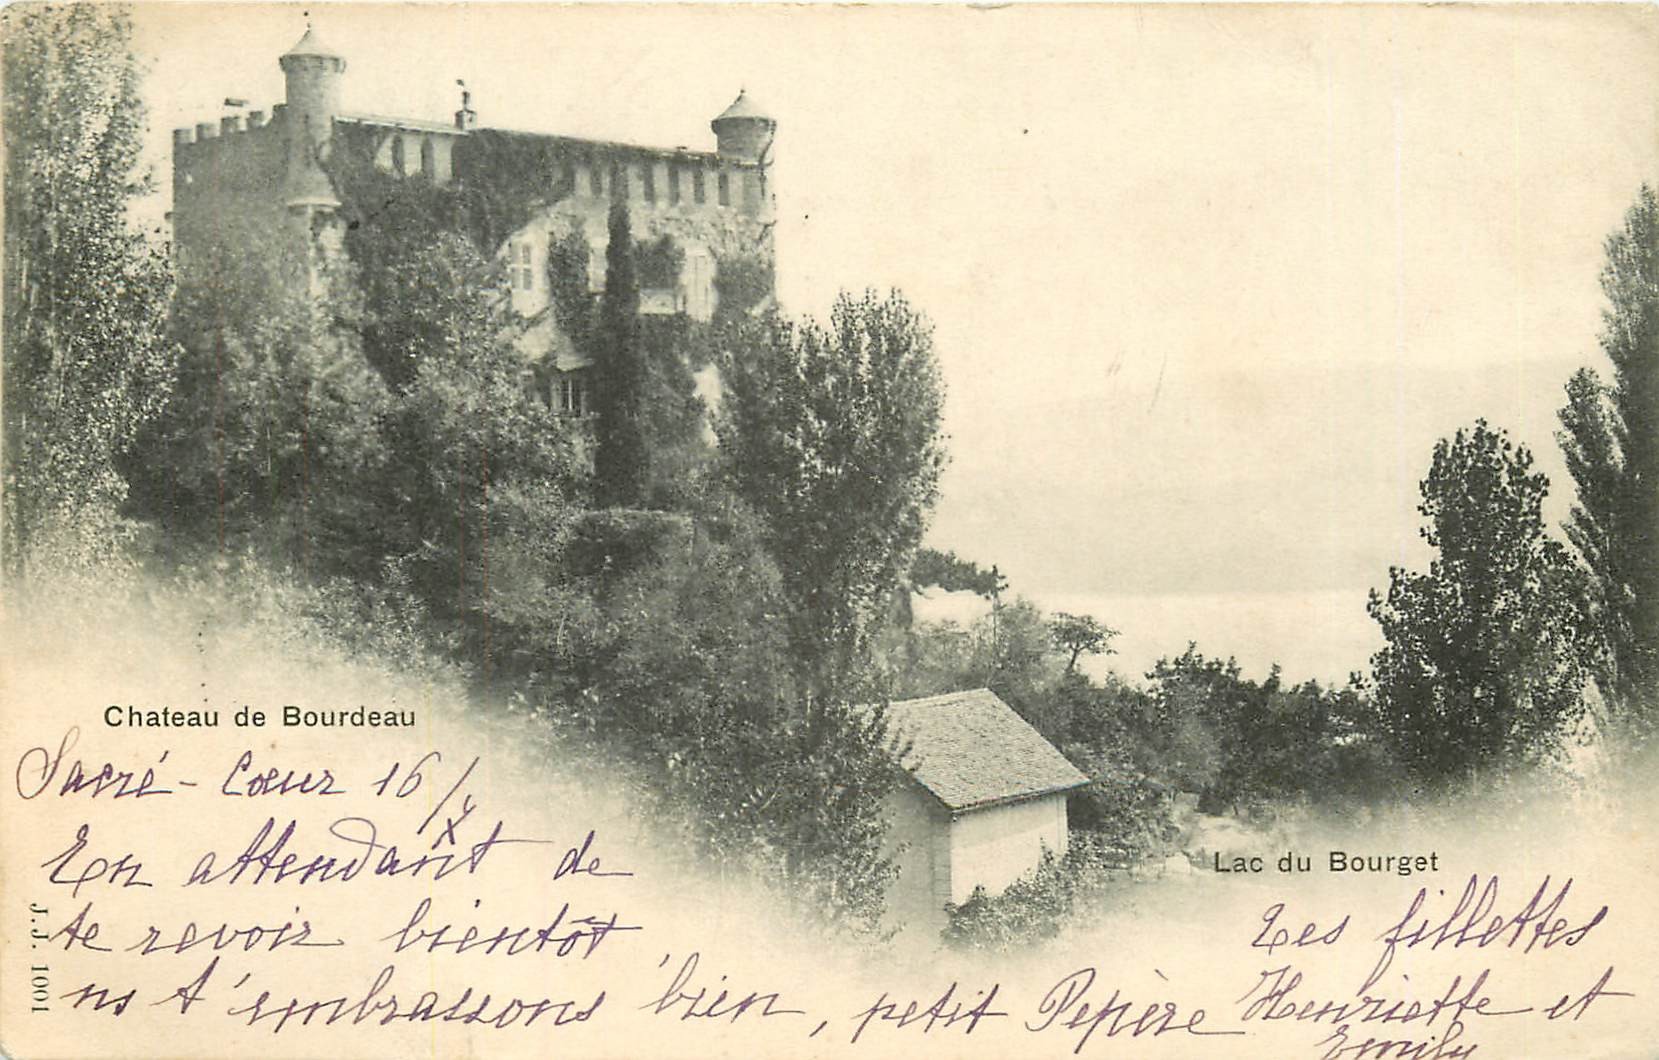 Chateau de Bourdeau
Sacré-Coeur 16/X
En attendant de
te revoir bientôt
ns t'embrassons bien, petit Pepère
Lac du Bourget
Tes fillettes
Henriette et
Emily
J.J. 1001